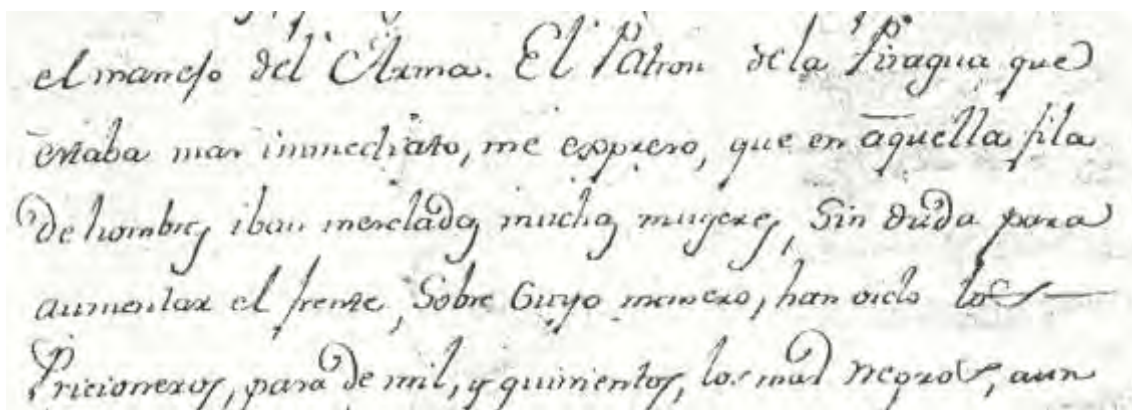 el manejo del Arma. El Patron de la Piragua que
estaba mas immediato, me expreso, que en aquella fila
de hombres iban mesclados muchas mugeres, Sin duda para
aumentar el frente, Sobre Cuyo numero, han oido los
Pricioneros, para de mil, y quinientos, los mas negros, aun